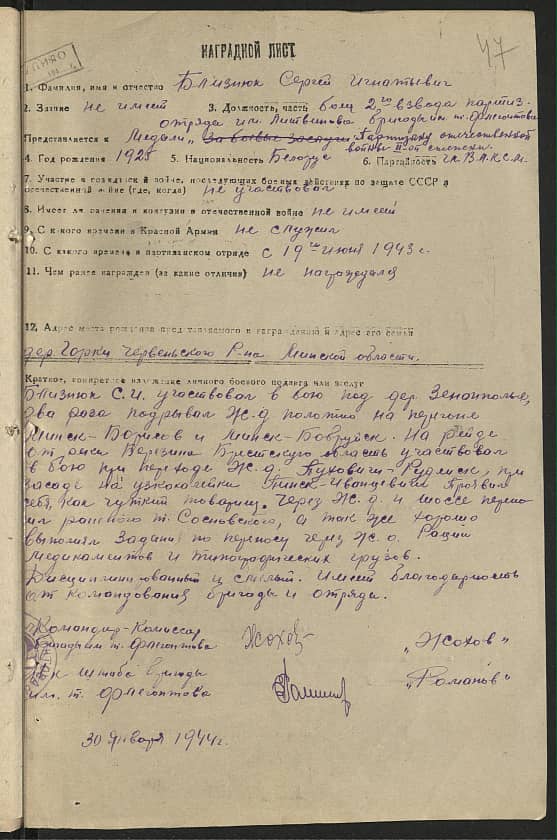 47
НАГРАДНОЙ ЛИСТ
1. Фамилия, имя и отчество Близнюк Сергей Игнатьевич
2. Звание не имеет 3. Должность, часть боец 2го взвода партиз.
отряда им. Литвинова бригады им. т. Флегонтова
Представляется к Медали „За боевые заслуги Партизану отечественной
войны IIой степени.
4. Год рождения 1925 5. Национальность Белорус 6. Партийность чл. ВЛКСМ.
7. Участие в гражданской войне, последующих боевых действиях по защите СССР и
отечественной войне (где, когда) не участвовал
8. Имеет ли ранения и контузии в отечественной войне не имеет
9. С какого времени в Красной Армии не служил
10. С какого времени в партизанском отряде с 19го июня 1943 г.
11. Чем ранее награжден (за какие отличия) не награждался
12. Адрес места рождения представляемого к награждению и адрес его семьи
дер. Горки Червеньского р-на Минской области.
Краткое, конкретное изложение личного боевого подвига или заслуг
Близнюк С.И. участвовал в бою под дер. Зенонполье,
два раза подрывал Ж.д. полотно на перегоне
Минск-Борисов и Минск-Бобруйск. На рейде
от реки Березина Брестскую область участвовал
в бою при переходе Ж.д. Пуховичи-Руденск, при
засаде на узкоколейки Пинск-Иванцевичи. Проявил
себя, как чуткий товарищ. Через Ж.д. и шоссе перено
сил раненого т. Сосновского, а так же хорошо
выполнял задание по переносу через Ж.д. Рации
медикаментов и типографических грузов.
Дисциплинированный и смелый. Имеет благодарность
от командования бригады и отряда.
Командир-Комиссар
бригады им т. Флегонтова „Жохов"
Н-к штаба бригады
им. т. Флегонтова „Романов"
30 января 1944г.